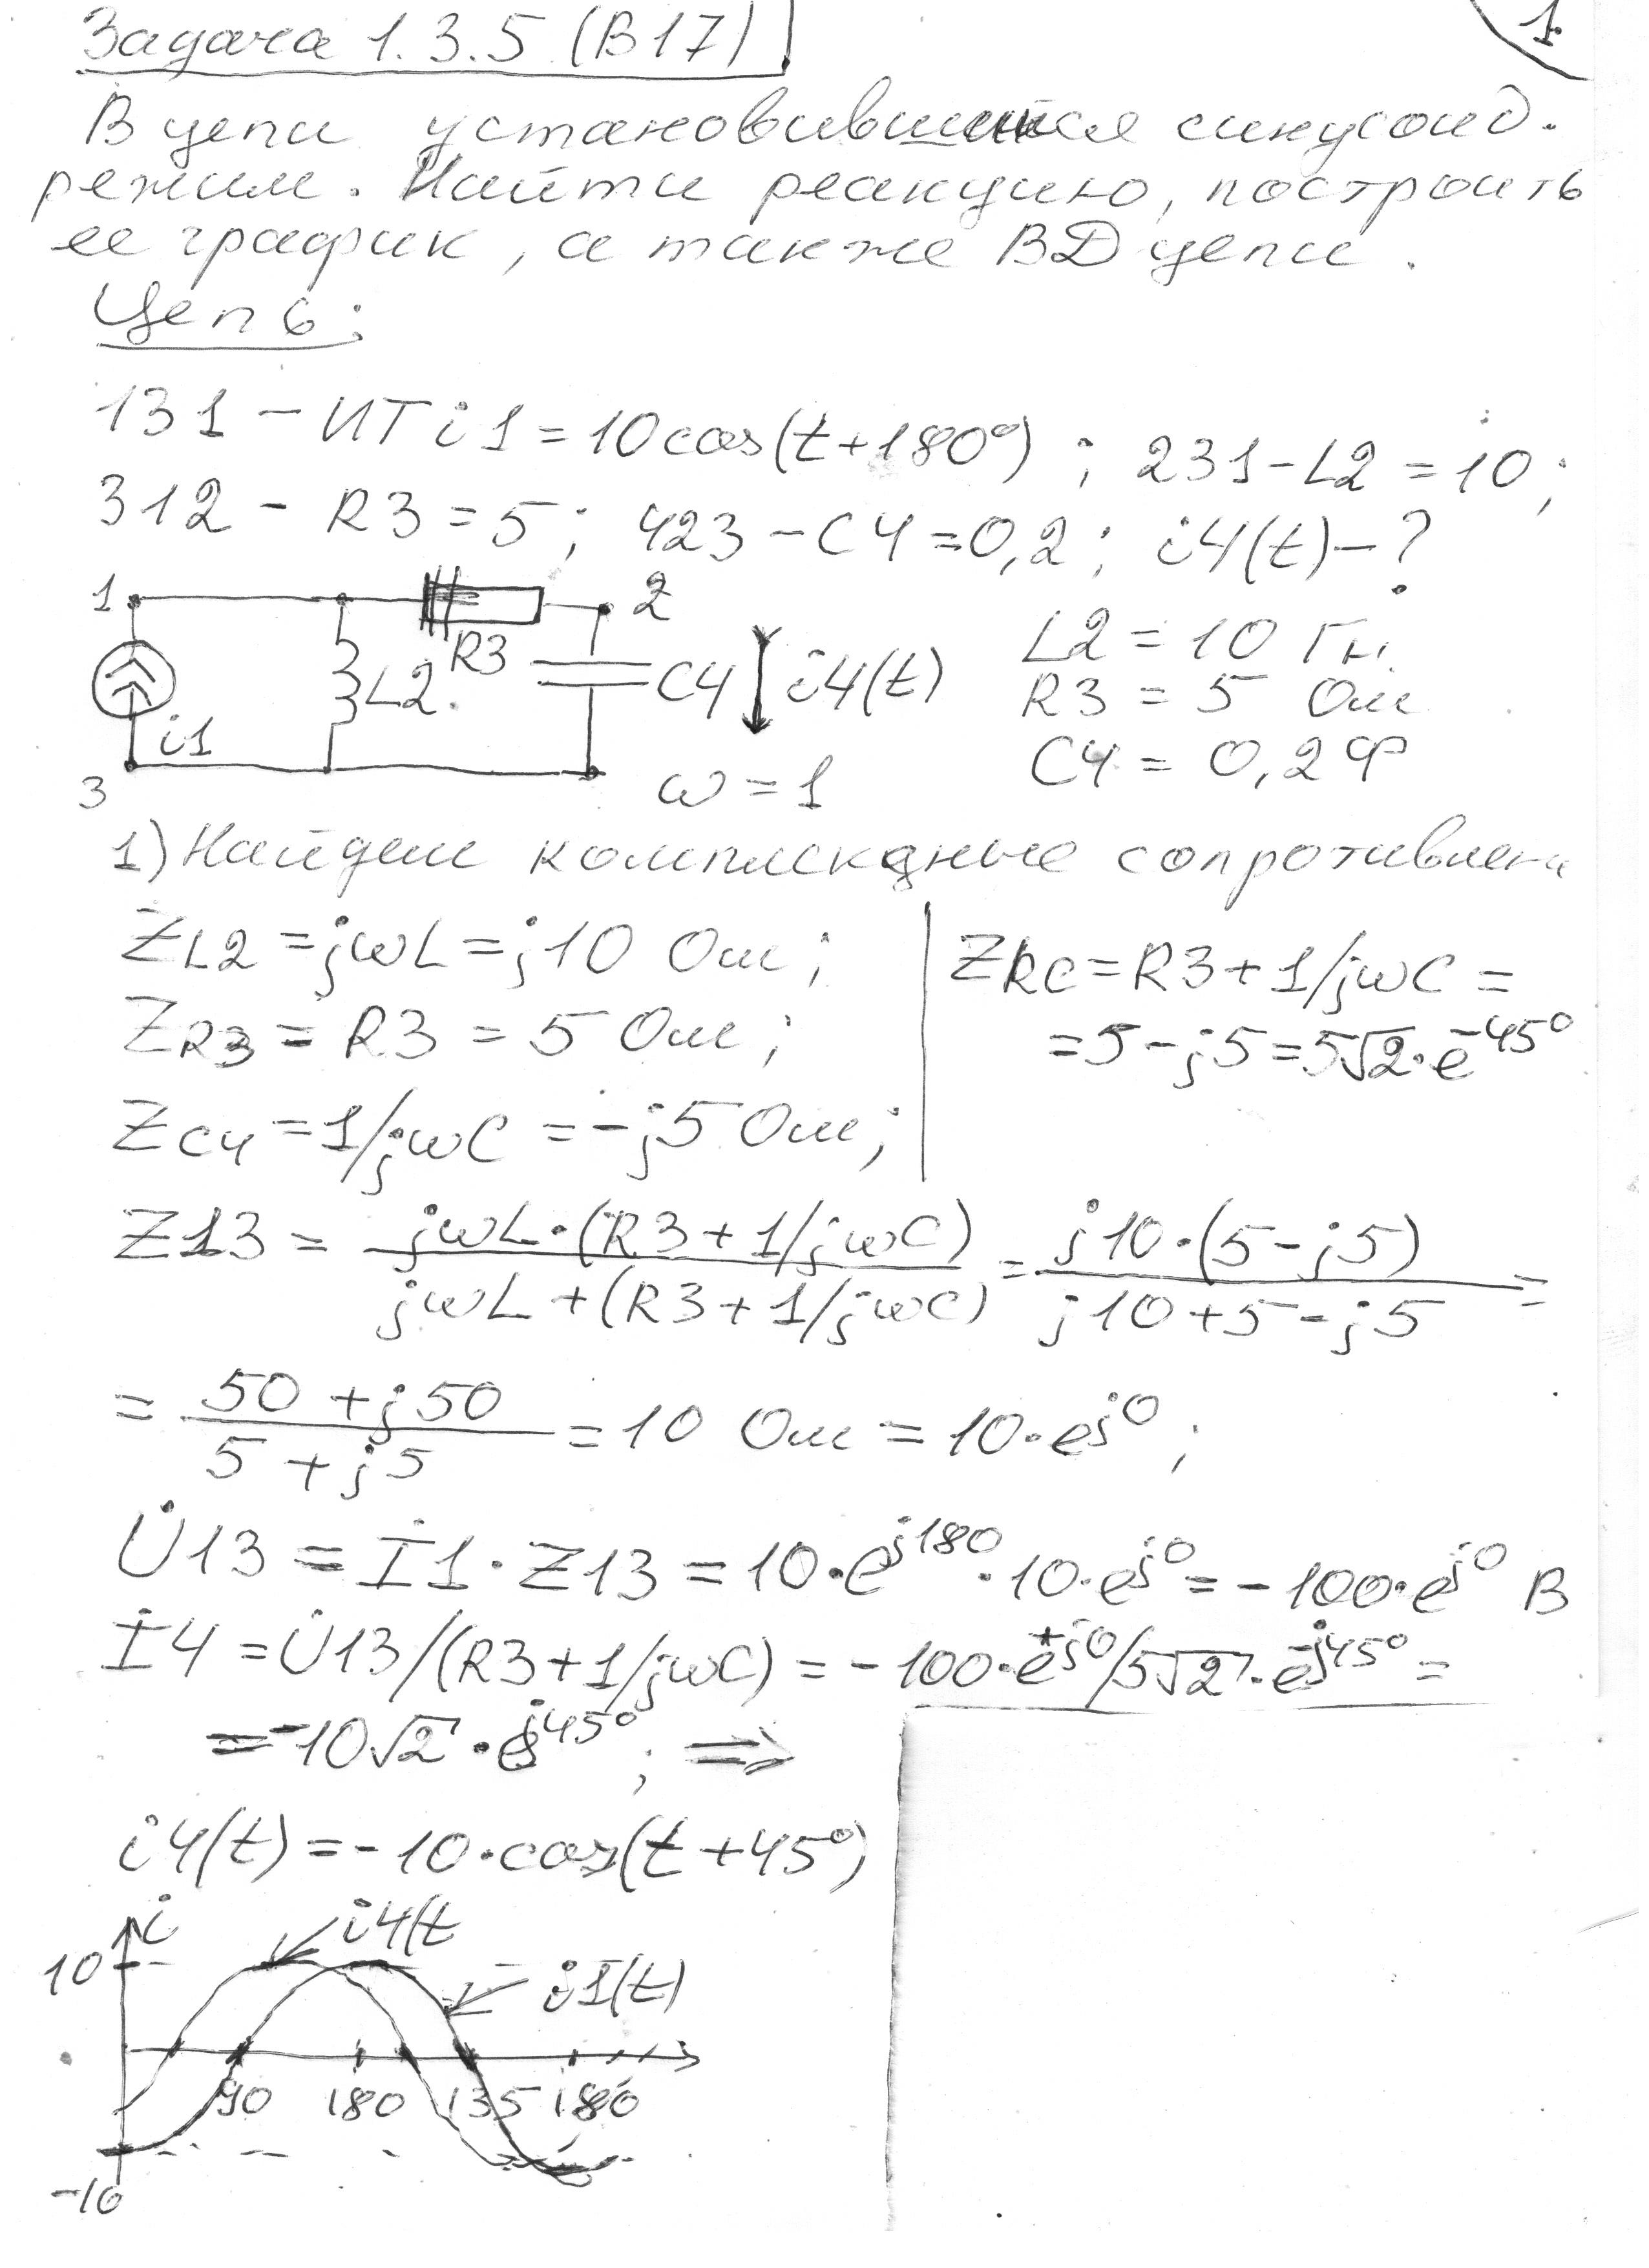 1.
Задача 1.3.5 (В17)
В цепи установившийся синусоид.
режим. Найти реакцию, построить
ее график, а также ВД цепи.
Цепь:
131 – ИТ i1 = 10cos(t+180°) ; 231 – L2 = 10 ;
312 – R3 = 5 ; 423 – C4 = 0,2 ; i4(t) – ?
1
2
R3
L2
C4
i4(t)
i1
3
ω = 1
L2 = 10 Гн.
R3 = 5 Ом
C4 = 0,2 Ф
1) Найдем комплексные сопротивлени
ZL2 = jωL = j10 Ом ;
ZR3 = R3 = 5 Ом ;
ZC4 = 1/jωC = –j5 Ом ;
ZRC = R3 + 1/jωC =
= 5 – j5 = 5√2·e^-45°
Z13 = jωL·(R3+1/jωC) / jωL+(R3+1/jωC) = j10·(5–j5) / j10+5–j5 =
= 50+j50 / 5+j5 = 10 Ом = 10·e^j0 ;
U̇13 = İ1·Z13 = 10·e^j180·10·e^j0 = –100·e^j0 В
İ4 = U̇13/(R3+1/jωC) = –100·e^+j0/5√2·e^-j45° =
= –10√2·e^j45° ; ⇒
i4(t) = –10·cos(t+45°)
i
i4(t
10
i1(t)
90 180 135 180
–10